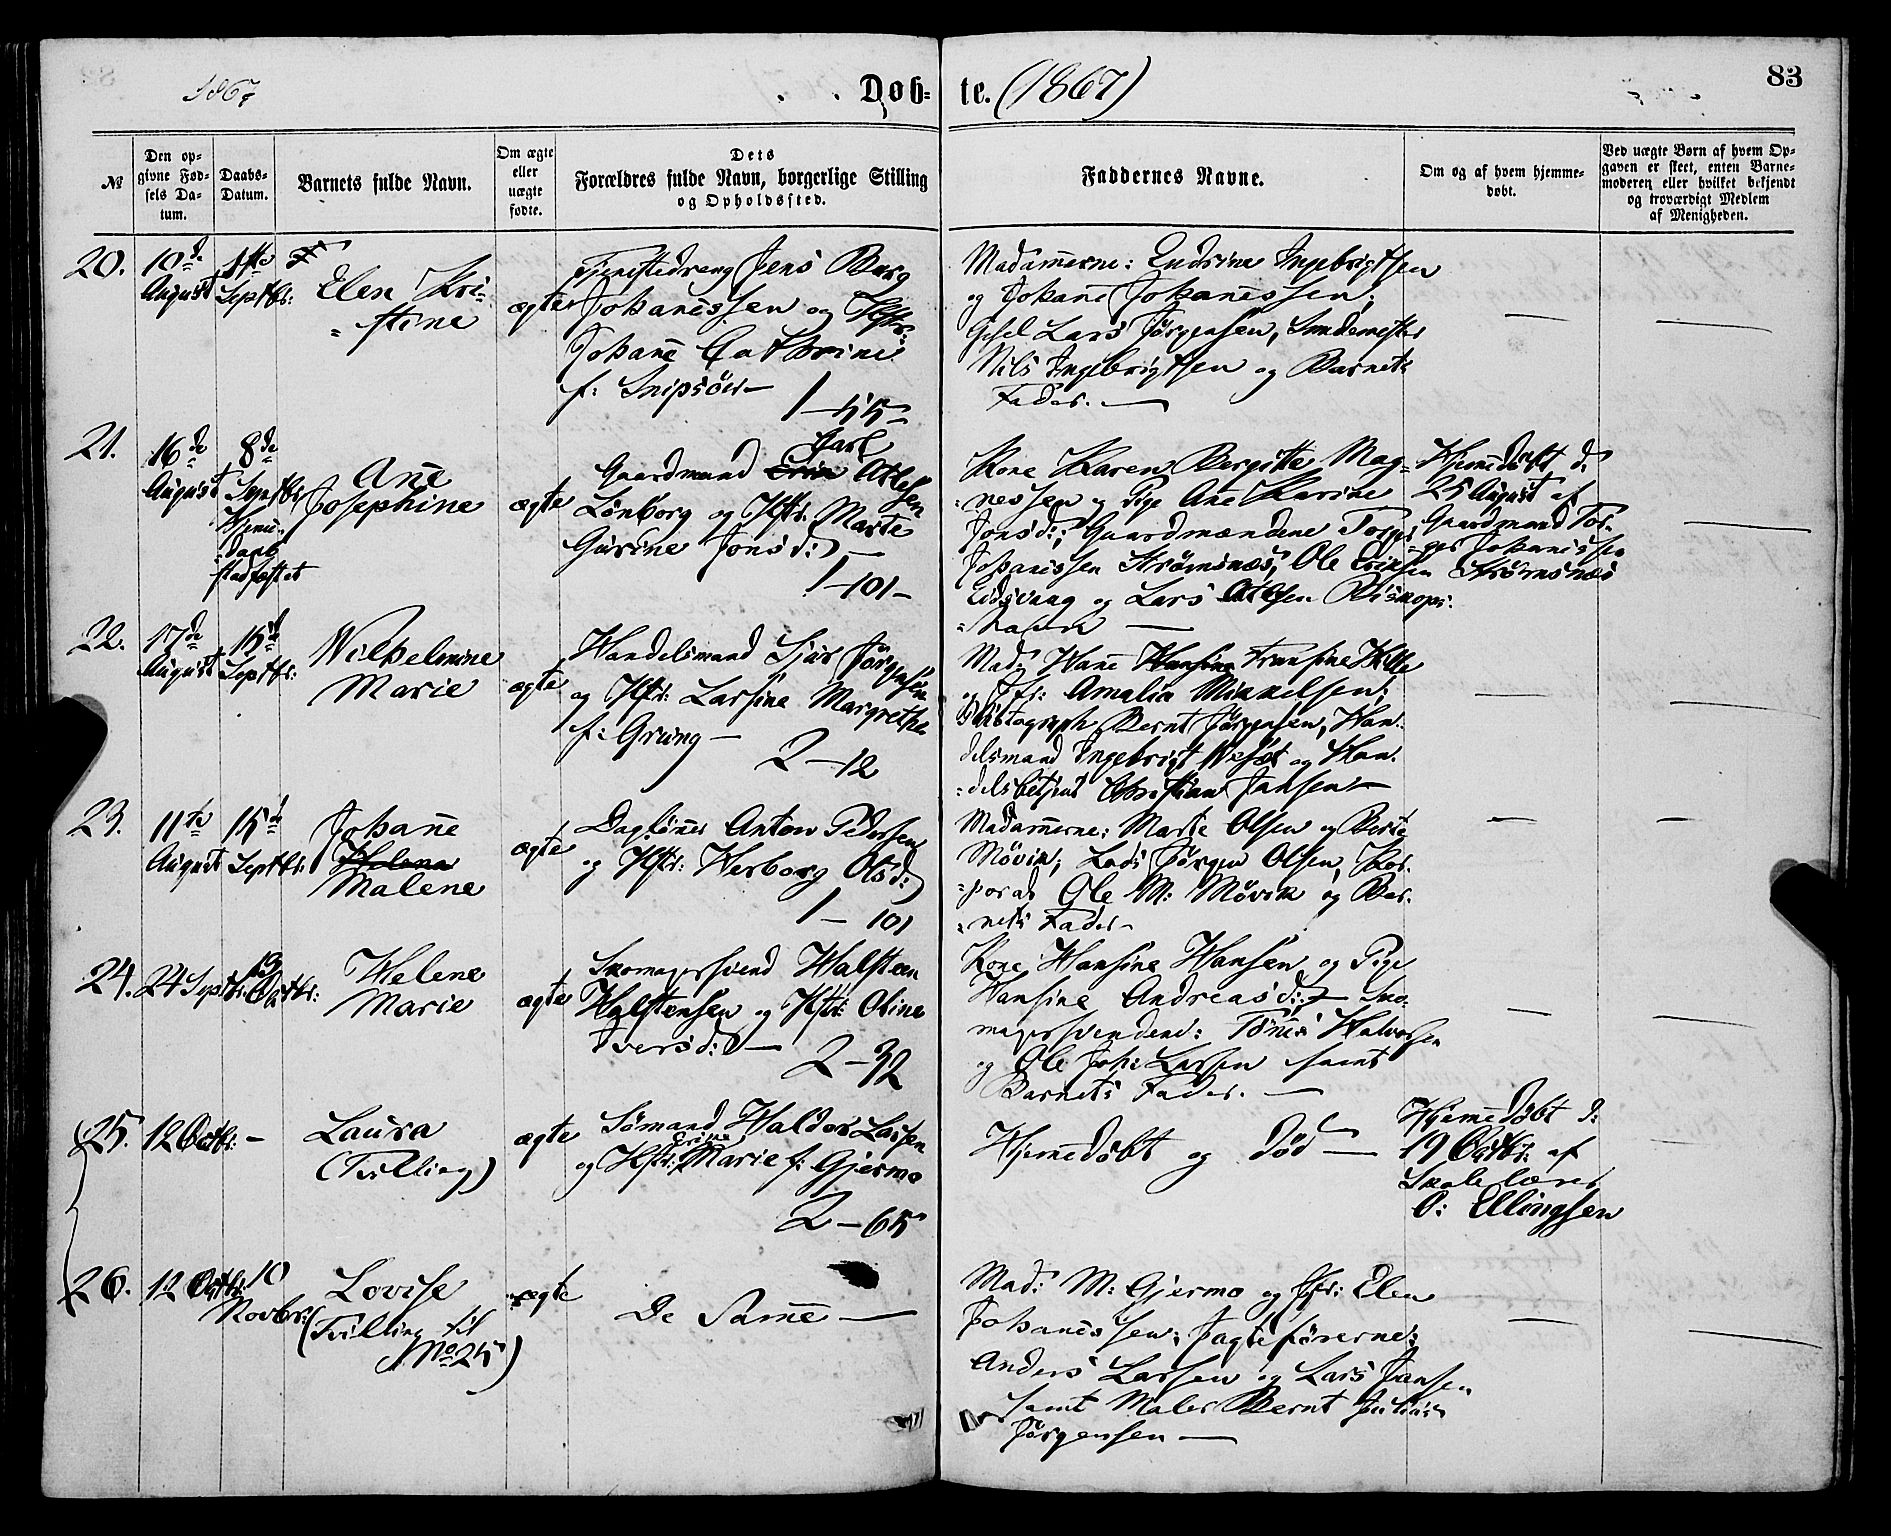 1867
Døb-
te. (1867)
83
№
Den op-
givne Fød-
sels Da-
tum.
Daabs-
Datum.
Barnets fulde Navn.
Om ægte
eller
uægte
fødte.
Dets
Forældres fulde Navn, borgerlige Stilling
og Opholdssted.
Faddernes Navne.
Om og af hvem hjemme-
døbt.
Ved uægte Børn af hvem Op-
gaven er skeet, enten Barne-
moderen eller hvilket bekjendt
og troværdigt Medlem
af Menigheden.
20.
10de
August
1ste
Septbr:
Elen Kri-
stine
ægte
Tjenestedreng Jens Berg
Johanessen og Hstr:
Johane Cathrine
f: Snipsøir
1-55
Madamerne: Endrine Ingebrigtsen
og Johane Johanessen;
Gesel Lars Jørgensen,
Nils Ingebrigtsen og Barnets
Fader.
21.
16de
August
8de
Septbr
Hjemme-
daab
stadfæstet
Ane
Josephine
ægte
Jarl
Gaardmand Atlesen
Lønborg og Hstr. Marte
Gurine Jonsd:
1-101-
Kone Karen Bergitte Mag-
nessen og Pige Ane Karine
Jonsd:; Gaardmændene Torger
Johanessen Strømsnæs, Ole Eriksen
Eidsvaag og Lars Atlesen Biskops-
havn
Hjemedøbt d.
25 August af
Gaardmand Tor-
ger Johanessen
Strømsnæs
22.
17de
August
15de
Septbr:
Wilhelmine
Marie
ægte
Handelsmand Sjur Jørgensen
og Hstr: Larsine Margrethe
f: Grung
2-12
Mad: Hane Hansine Transine Kolbe
og Jfr: Amalia Mikkelsen;
Photograph Bernt Jørgensen, Han-
delsmand Ingebrigt Næsæt og Han-
delsbetjent Christian Jansen
23.
11te
August
15de
Septbr:
Johane
Helena
Malene
ægte
Dagløner Anton Pedersen
og Hstr: Herborg Olsd:
1-101
Madamerne: Marte Olsen og Berte
Møvik; Lods Jørgen Olsen, Kor-
poral Ole M: Møvik og Bar-
nets Fader
24.
24 Septbr:
13
Octbr:
Helene
Marie
ægte
Skomagersvend Halsteen
Halstensen og Hstr: Oline
Iversd:
2-32
Kone Hansine Hansen og Pige
Hansine Andreasd:; Sko-
magersvendene: Tønnes Halvorsen
og Ole Joh: Larsen samt
Barnets Fader.
25.
12 Octbr:
-
Laura
(Tvilling)
ægte
Sømand Haldor Larsen
og Hstr: Erine Marie f: Gjermo
2-65
Hjemedøbt og død
Hjemedøbt d:
19 Octbr: af
Skolelærer
O: Ellingsen
26.
12 Octbr:
10
Novbr:
Lovise
(Tvilling til
No 25)
ægte
De Samme
Mad: M: Gjermo og Jfr: Elen
Johanessen; Jagteførerne:
Anders Larsen og Lars Jansen
samt Maler Bernt Julius
Jørgensen